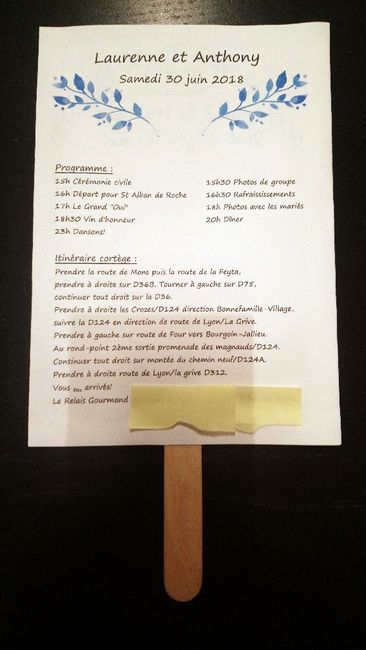 Laurenne et Anthony
Samedi 30 juin 2018
Programme :
15h Cérémonie civile
15h30 Photos de groupe
16h Départ pour St Alban de Roche
16h30 Rafraississements
17h Le Grand "Oui"
18h Photos avec les mariés
18h30 Vin d'honneur
20h Dîner
23h Dansons!
Itinéraire cortège :
Prendre la route de Mons puis la route de la Feyta,
prendre à droite sur D36B. Tourner à gauche sur D75,
continuer tout droit sur la D36.
Prendre à droite les Crozes/D124 direction Bonnefamille-Village,
suivre la D124 en direction de route de Lyon/La Grive.
Prendre à gauche sur route de Four vers Bourgoin-Jallieu.
Au rond-point 2ème sortie promenade des magnauds/D124.
Continuer tout droit sur montée du chemin neuf/D124A.
Prendre à droite route de Lyon/la grive D312.
Vous êtes arrivés!
Le Relais Gourmand